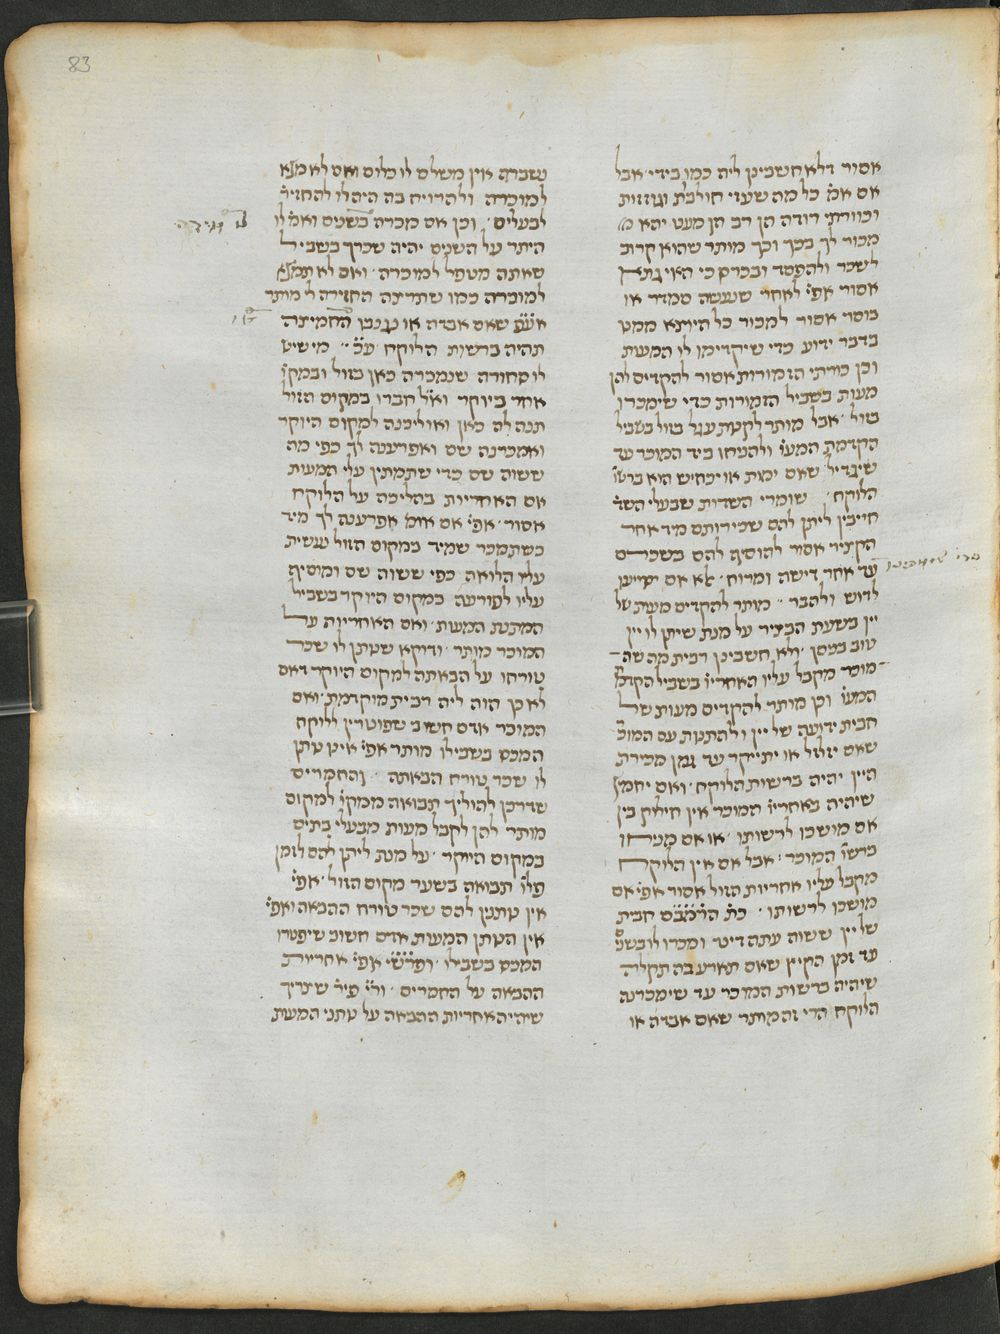 83
אסור דלא חשבינן ליה כמו בידי׳ אבל
אם אמ׳ כל מה שעזי חולבת וגוזזות
וכוורתי רודה הן רב הן מעט יהא
מכור לך בכך וכך מותר שהוא קרוב
לשכר ולהפסד ובכרם כי האי גונא
אסור אפי׳ לאחר שנעשה סמדר או
בוסר אסור למכור כל היוצא ממנו
בדבר ידוע כדי שיקדימו לו המעות
וכן כורתי הזמורות אסור להקדים להן
מעות בשביל הזמורות כדי שימכרו
בזול׳ אבל מותר לקנות עגל בזול בשביל
הקדמת המעו׳ ולהניחו ביד המוכר עד
שיגדיל שאם ימות או יכחיש הוא ברשו׳
הלוקח׳ שומרי השדות שבעלי השד׳
חייבין ליתן להם שכירותם מיד אחר
הקציר אסור להוסיף להם בשכרם
עד אחר דישה ומרוח׳ אלא אם יסייען
לדוש ולהבר׳׳ מותר להקדים מעות על
יין בשעת הבציר על מנת שיתן לו יין
טוב בניסן׳ ולא חשבינן רבית מה שה
מוכר מקבל עליו האחריו׳ בשביל הקדמ׳
המעו׳ וכן מותר להקדים מעות של
חבית ידועה של יין ולהתנות עם המוכ׳
שאם יוזל או יתייקר עד זמן מכירת
היין יהיה ברשות הלוקח׳ ואם יחמץ
שיהיה באחריו׳ המוכר אין חילוק בין
אם מושכו לרשותו׳ או אם מניחו
ברשו׳ המוכר׳ אבל אם אין הלוקח
מקבל עליו אחריות הזול אסור אפי׳ אם
מושכו לרשותו׳ כת׳ הרמב״ם חבית
של יין ששוה עתה דינר ומכרו לו בשני׳
עד זמן הקיץ שאם תארע בה תקלה
שיהיה ברשות המוכר עד שימכרנה
הלוקח הרי זה מותר שאם אבדה או
נשברה אין משלם לו כלום ואם לא מצא
למוכרה ולהרויח בה היה לו להחזיר׳
לבעלים׳ וכן אם מכרה בשנים ואמ׳ לו
היתר על השנים יהיה שכרך בשביל
שאתה מטפל למוכרה׳ ואם לא תמצא
למוכרה כמו שתרצה החזירה לי מותר
אע״פ שאם אבדה או נגנבו החמיצה
תהיה ברשות הלוקח ע״כ׳׳ מי שיש
לו סחורה שנמכרה כאן בזול ובמקו׳
אחר ביוקר וא״ל חברו במקום הזול
תנה לה כאן ואוליכנה למקום היוקר
ואמכרנה שם ואפרענה לך כפי מה
ששוה שם כדי שתמתין עלי המעות
אם האחריות בהליכה על הלוקח
אסור׳ אפי׳ אם אומ׳ אפרענה לך מיד
כשתמכר שמיד במקום הזול נעשית
עליו הלואה כפי ששוה שם ומוסיף
עליו לפורעה במקום היוקר בשביל
המתנת המעות׳ ואם האחריות על
המוכר מותר׳ ודוקא שנותן לו שכר
טורחו על הבאתה למקום היוקר דאם
לא כן הוה ליה רבית מוקדמת׳ ואם
המוכר אדם חשוב שפוטרין ללוקח
המכס בשבילו מותר אפי׳ אינו נותן
לו שכר טורח הבאתה׳׳ והחמרים
שדרכן להוליך תבואה ממקו׳ למקום
מותר להן לקבל מעות מבעלי בתים
במקום היוקר׳ על מנת ליתן להם לזמן
פלו׳ תבואה בשער מקום הזול׳ אפי׳
אין נותנין להם שכר טורח ההבאה ואפי׳
אין הנותן המעות אדם חשוב שיפטרו
המכס בשבילו׳ ופרש״י אפי׳ אחריות
ההבאה על החמרים׳ ור״י פיר׳ שצריך
שיהיה אחריות ההבאה על נותני המעות